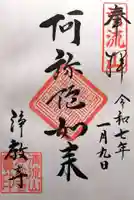 奉拝
令和七年
一月九日
阿弥陀如来
浄教寺